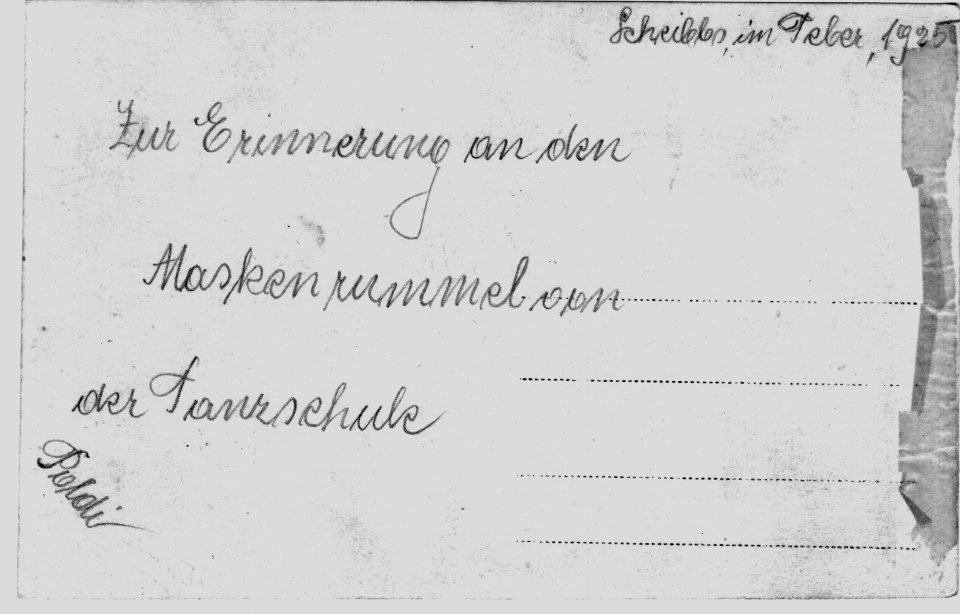 Scheibbs, im Feber, 1925
Zur Erinnerung an den
Maskenrummel von
der Tanzschule
Poldi